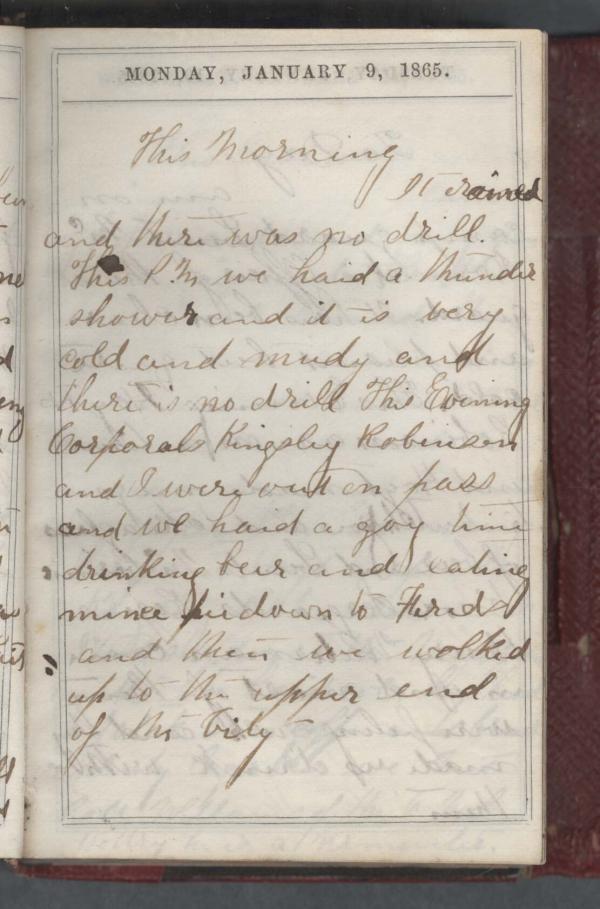 MONDAY, JANUARY 9, 1865.
This Morning
It rained
and there was no drill.
This P.M we haid a thunder
shower and it is very
cold and mudy and
there is no drill This Evening
Corporals Kingsley Robinson
and I were out on pass
and we haid a gay time
drinking beer and eating
mince pie down to
and then we wolked
up to the upper end
of the City